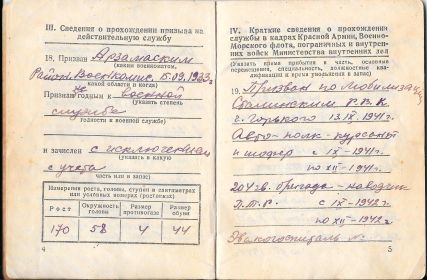 III. Сведения о прохождении призыва на
действительную службу
18. Призван Арзамаским
(каким военкоматом,
Район. Воен Комис. 15.09.1933 г.
какой области и когда)
Признан не годным к военной
(указать степень
службе
годности к военной службе)
и зачислен с исключением
(указать в какую
с учета
часть или в запас)
Измерения роста, головы, ступни в сантиметрах
или условных номерах (ростовках)
Рост Окружность головы Размер противогаза Размер обуви
170 58 4 44
4
IV. Краткие сведения о прохождении
службы в кадрах Красной Армии, Военно-
Морского флота, пограничных и внутрен-
них войск Министерства внутренних дел
(Указать время прибытия в часть, основные
перемещения, специальность, должностные
квалификации и время увольнения в запас)
19. Призван по мобилизации
Сталинским Р.В.К.
г. Горького 13 IX-1941 г.
Авто-полк-курсант
и шофер с IX-1941 г.
по XII-1941 г.
204 зв. бригада - наводчик
П.Т.Р. с IX-1942 г.
по XII-1942 г.
Эвакогоспиталь
5